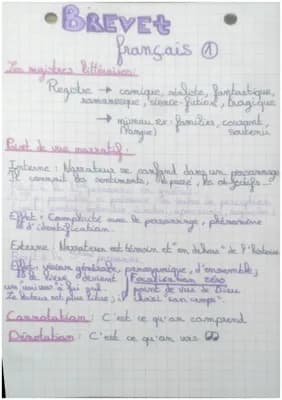 BREVET
français 1
Les registres littéraires:
Registre → comique, réaliste, fantastique,
romanesque, science-fiction, tragique
→ niveau : familier, courant,
(langue) soutenu
Point de vue narratif :
Interne : Narrateur se confond dans un personnage
Il connait les sentiments, le passé, les objectifs...
Effet : Complicité avec le personnage, phénomène
d'identification.
Externe : Narrateur est témoin et "en dehors" de l'histoire
Effet : vision générale, panoramique, d'ensemble,
le livre devient Focalisation zéro
un univers à lui seul. point de vue de Dieu
Le lecteur est plus libre,
Connotation : C'est ce qu'on comprend
Dénotation : C'est ce qu'on voit